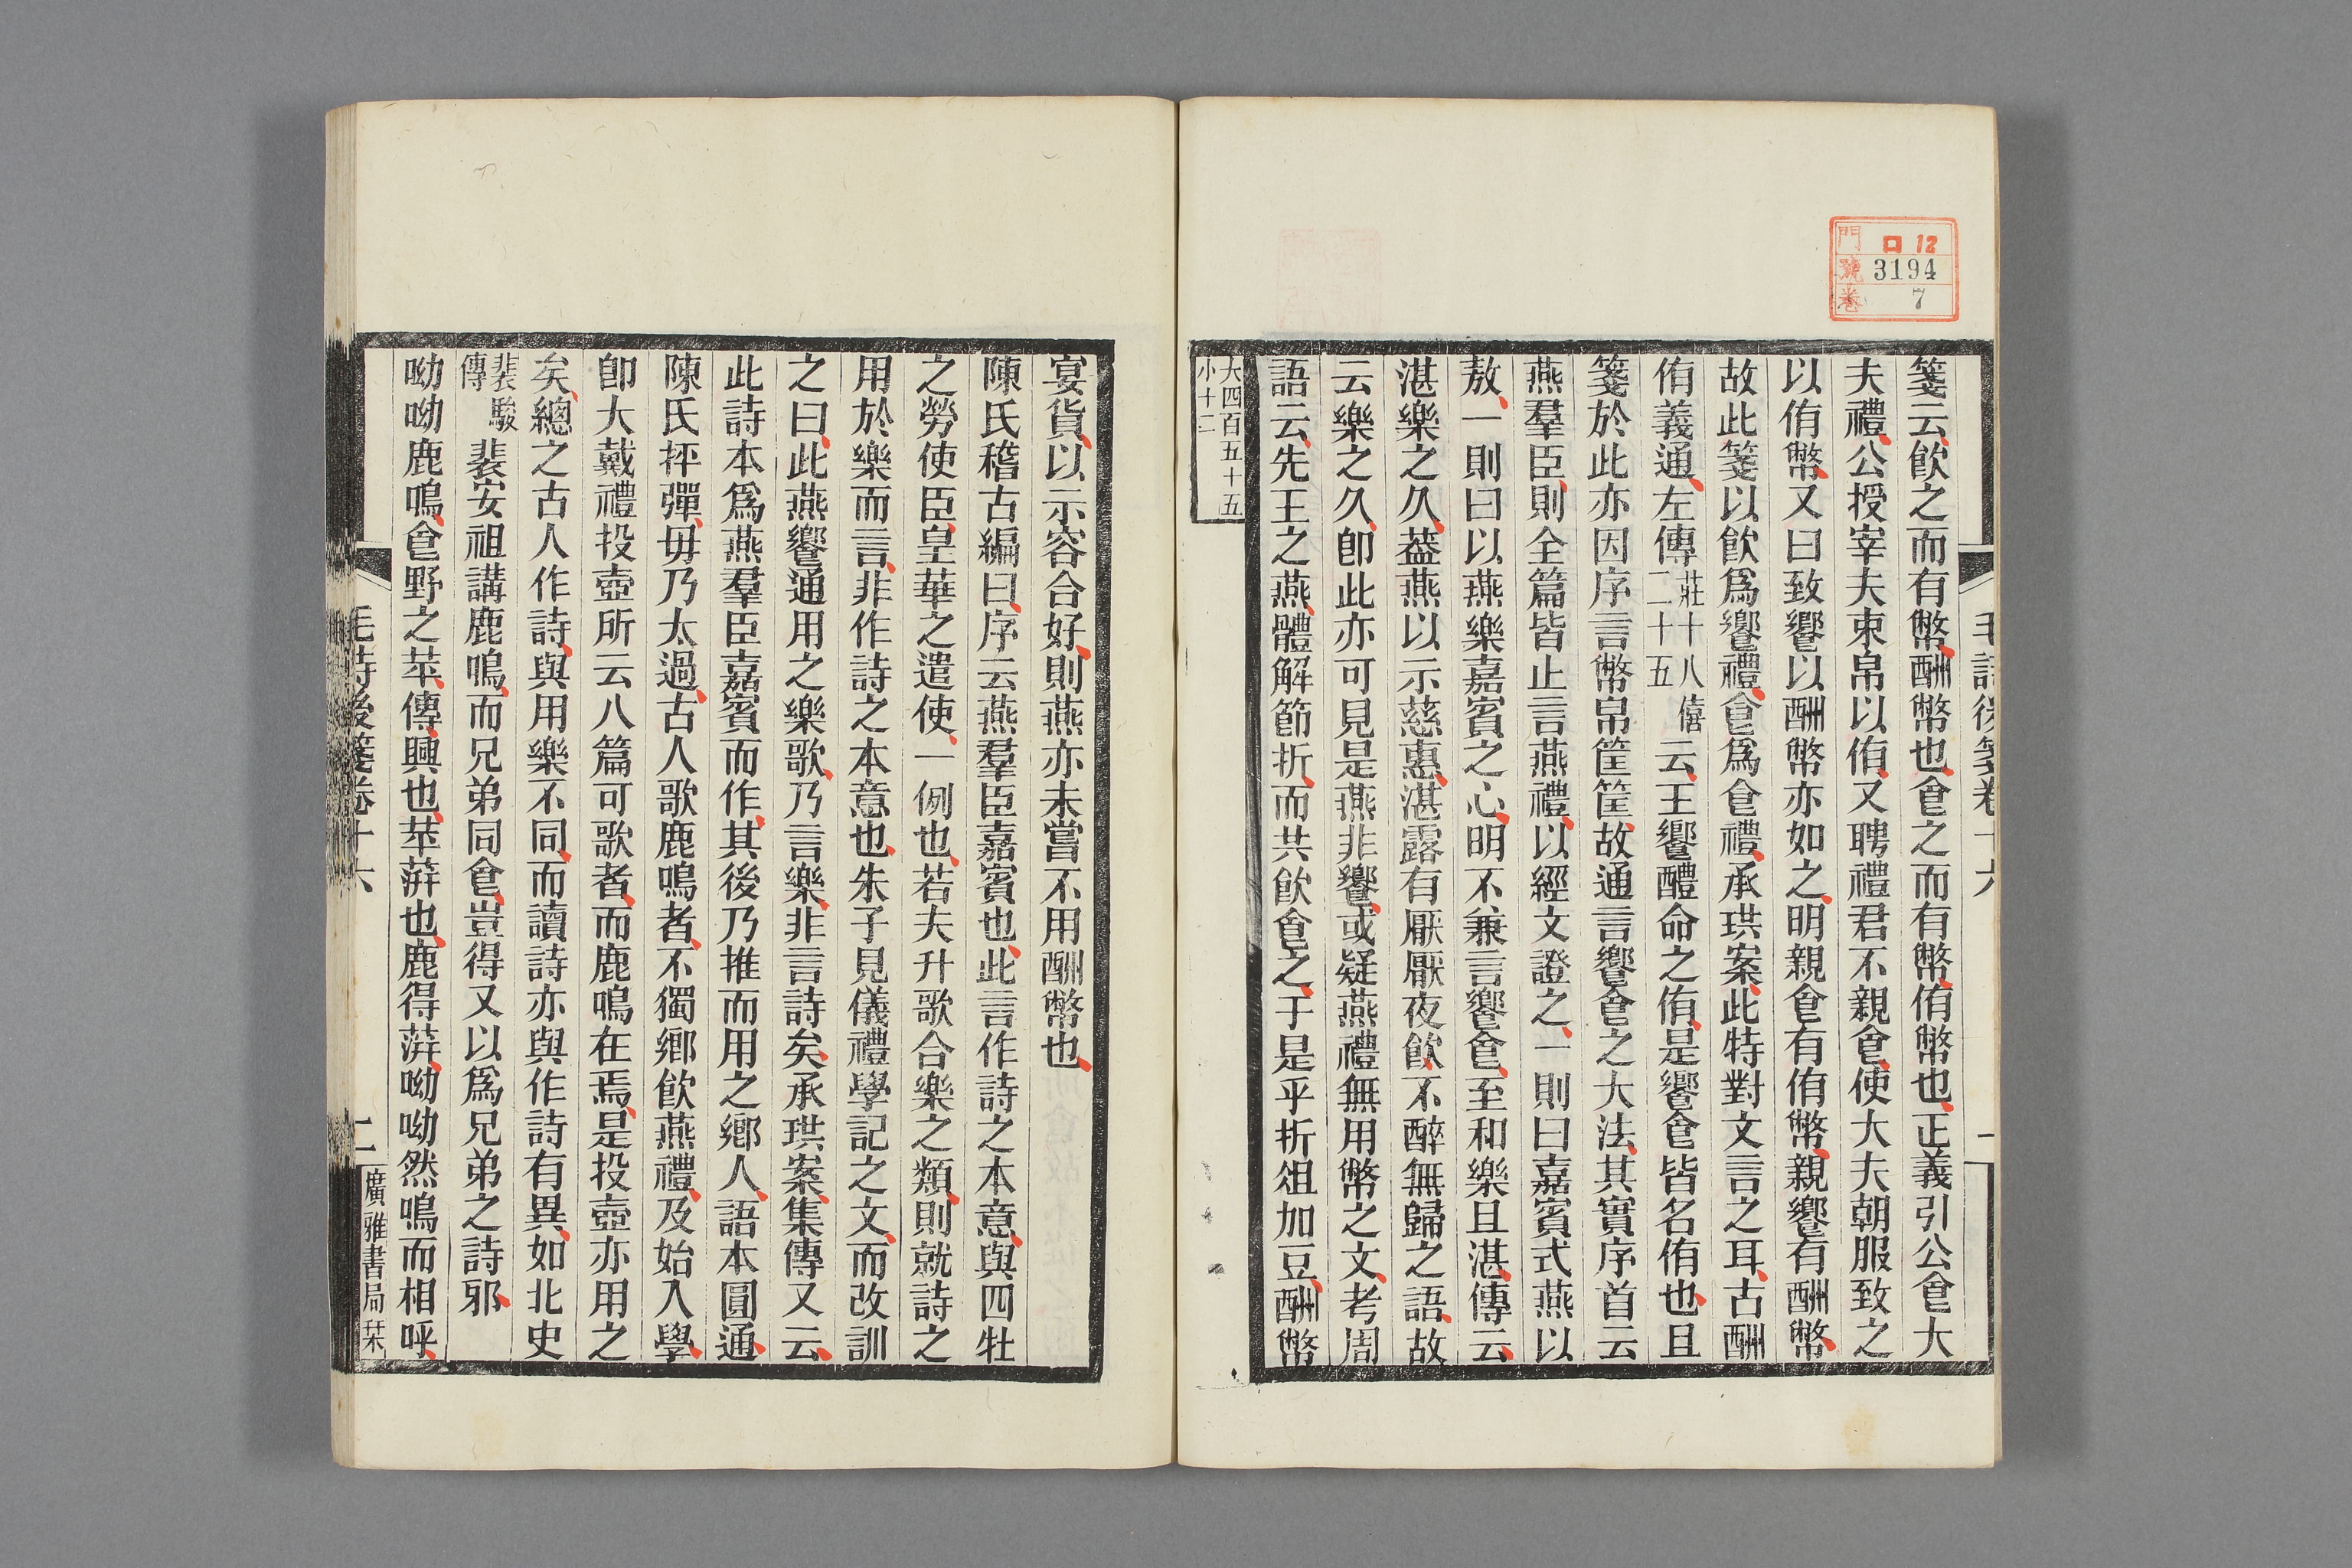 門 口 12
號 3194
卷 7
毛詩後箋卷十六
一
箋云飮之而有幣酬幣也食之而有幣侑幣也正義引公食大
夫禮公授宰夫束帛以侑又聘禮君不親食使大夫朝服致之
以侑幣又曰致饗以酬幣亦如之明親食有侑幣親饗有酬幣
故此箋以飮爲饗禮食爲食禮承珙案此特對文言之耳古酬
侑義通左傳莊十八僖二十五云王饗醴命之侑是饗食皆名侑也且
箋於此亦因序言幣帛筐筐故通言饗食之大法其實序首云
燕羣臣則全篇皆止言燕禮以經文證之一則曰嘉賓式燕以
敖一則曰以燕樂嘉賓之心明不兼言饗食至和樂且湛傳云
湛樂之久葢燕以示慈惠湛露有厭厭夜飮不醉無歸之語故
云樂之久卽此亦可見是燕非饗或疑燕禮無用幣之文考周
語云先王之燕體解節折而共飮食之于是乎折俎加豆酬幣
大四百五十五
小十二
宴貨以示容合好則燕亦未嘗不用酬幣也
陳氏稽古編曰序云燕羣臣嘉賓也此言作詩之本意與四牡
之勞使臣皇華之遣使一例也若夫升歌合樂之類則就詩之
用於樂而言非作詩之本意也朱子見儀禮學記之文而改訓
之曰此燕饗通用之樂歌乃言樂非言詩矣承珙案集傳又云
此詩本爲燕羣臣嘉賓而作其後乃推而用之鄉人語本圓通
陳氏抨彈毋乃太過古人歌鹿鳴者不獨鄉飮燕禮及始入學
卽大戴禮投壺所云八篇可歌者而鹿鳴在焉是投壺亦用之
矣總之古人作詩與用樂不同而讀詩亦與作詩有異如北史
裴駿傳裴安祖講鹿鳴而兄弟同食豈得又以爲兄弟之詩邪
呦呦鹿鳴食野之苹傳興也苹蓱也鹿得蓱呦呦然鳴而相呼
毛詩後箋卷十六
二
廣雅書局栞